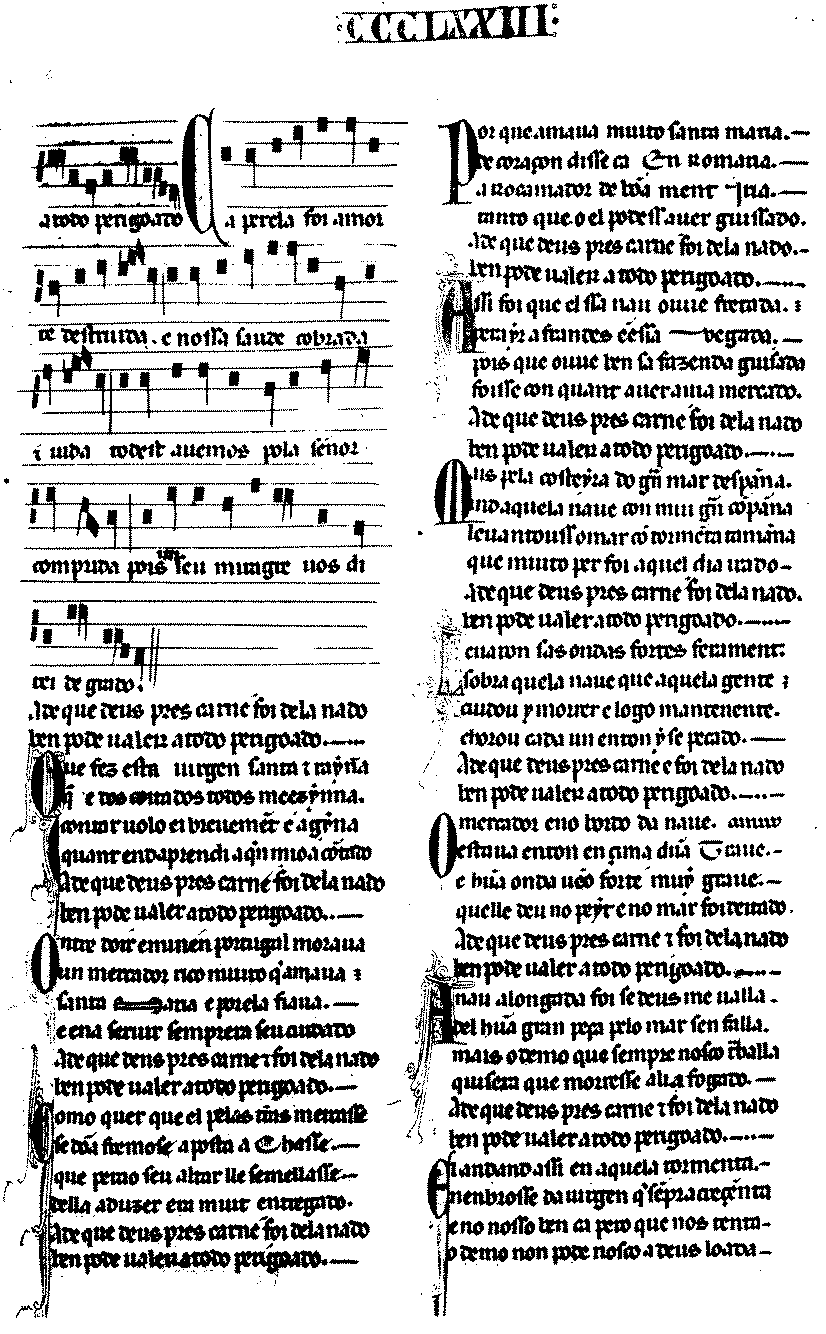 CCCLXXIII
a todo perigoado Ca perela foi amor
te destruida. e nossa saude cobrada
τ uida todest auemos pola senor
comprida pois un seu miragre uos di
rei de grado.
Ade que deus pres carne foi dela nado
ben pode ualer a todo perigoado.
Que fez esta uirgen santa τ rayna
q̇ e dos coitados todos meezyn̄na.
contar uolo ei breuemēt e agȳna
quant end aprendi a q̄n mio a cōtado
Ade que deus pres carne foi dela nado
ben pode ualer a todo perigoado.
Ontre doir e minen portugal moraua
un mercador rico muito q̇ amaua
santa maria e porela fiaua.
e en a seruir sempr era seu cuidado
Ade que deus pres carne τ foi dela nado
ben pode ualer a todo perigoado.
Como quer que el pelas t̄ras mercasse
se dōa fremosa aposta achasse.
que pera seu altar lle semellasse
della aduzer era muit entregado.
Ade que deus pres carne foi dela nado
ben pode ualer a todo perigoado.
Por que amaua muito santa maria.
de coraçon disse ca en Romaria.
a Rocamador de bōa ment iria.
tanto que o el podess auer guissado.
Ade que deus pres carne foi dela nado.
ben pode ualer a todo perigoado.
Assi foi que el ssa naue ouue fretada.
pera yr a frandes e essa uegada.
pois que ouue ben sa fazenda guisada
foisse con quant auer auia mercado.
Ade que deus pres carne foi dela nado
ben pode ualer a todo perigoado.
Mas pela costeyra do grā mar despāna.
ind aquela naue con mui grā cōpāna
leuantouss o mar cō tormēta tamāna
que muito per foi aquel dia irado
Ade que deus pres carne foi dela nado.
ben pode ualer a todo perigoado.
Leuaron sas ondas fortes ferament
sobr aquela naue que aquela gente
cuidou y morrer e logo mantenente.
chorou cada un enton y se pecado.
Ade que deus pres carne e foi dela nado
ben pode ualer a todo perigoado.
O mercador eno bordo da naue.
estaua enton en çima dūa traue.
e hūa onda uēo forte mui graue.
que lle deu no peyt e no mar foi deitado.
Ade que deus pres carne τ foi dela nado
ben pode ualer a todo perigoado.
A nau alongada foi se deus me ualla.
del hūa gran peça pelo mar sen falla.
mais o demo que sempre nosco t̄balla
quisera que morresse alia fogado.
Ade que deus pres carne τ foi dela nado
ben pode ualer a todo perigoado.
El andand assi en aquela tormenta.
nenbrosse da uirgen q̇ sēpr acreçenta
eno nosso ben ca pero que nos tenta
o demo non pode nosco a deus loada